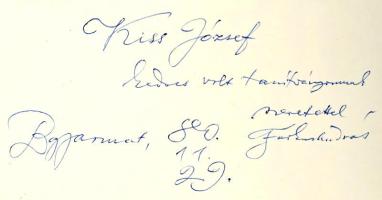 Kiss József
kedves volt tanítványomnak
szeretettel
Bgyarmat, 80. Farkas András
11.
29.